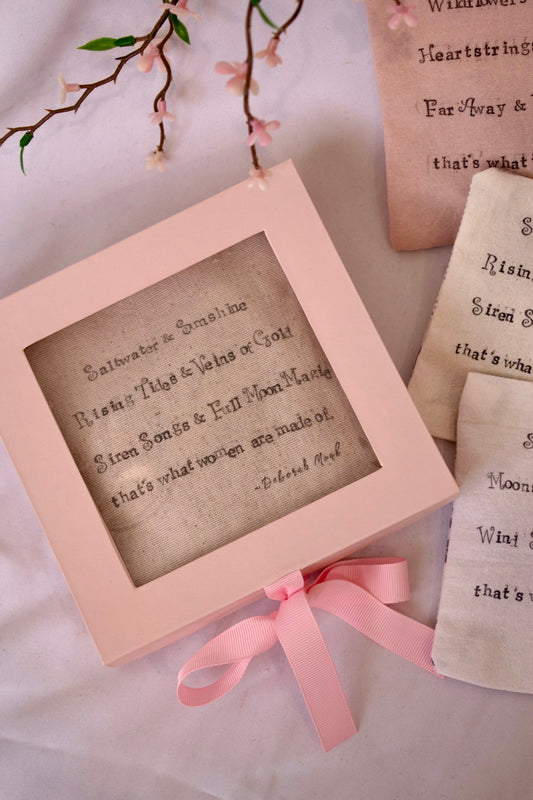 Saltwater & Sunshine
Rising Tides & Veins of Gold
Siren Songs & Full Moon Magic
that's what women are made of.
~Deborah Nash
Wildflowers
Heartstrings
Far Away &
that's what
Rising
Siren
that's what
Wind
that's